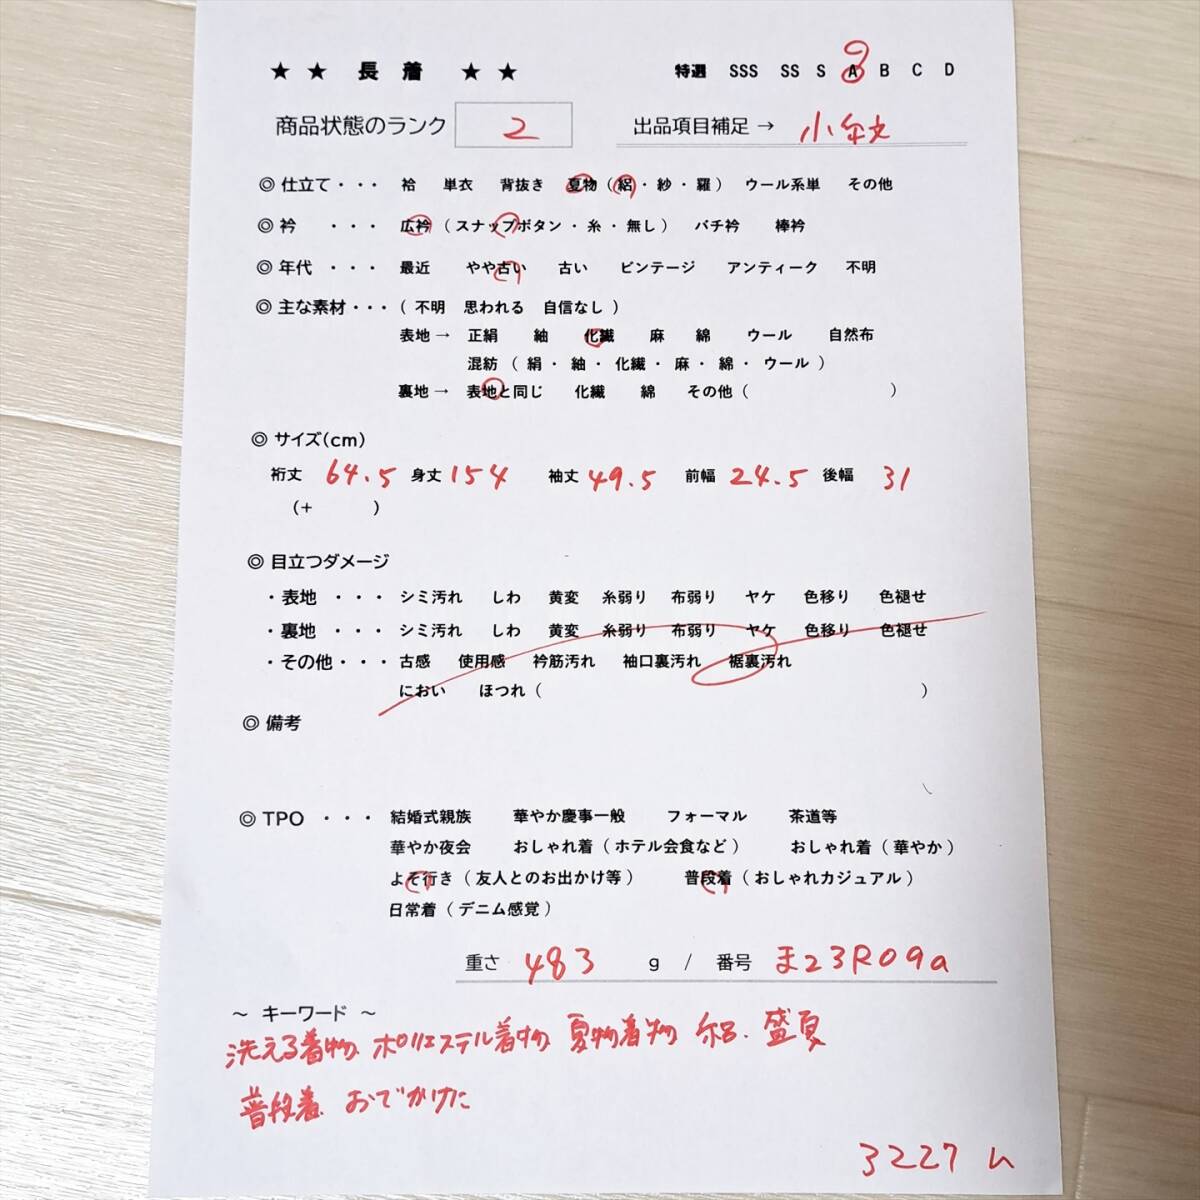 ★ ★ 長 着 ★ ★ 特選 SSS SS S A B C D
商品状態のランク 2 出品項目補足 → 小紋
◎ 仕立て・・・ 袷 単衣 背抜き 夏物 ( 絽 ・ 紗 ・ 羅 ) ウール系単 その他
◎ 衿 ・・・ 広衿 ( スナップボタン ・ 糸 ・ 無し ) バチ衿 棒衿
◎ 年代 ・・・ 最近 やや古い 古い ビンテージ アンティーク 不明
◎ 主な素材・・・ ( 不明 思われる 自信なし )
表地 → 正絹 紬 化繊 麻 綿 ウール 自然布
混紡 ( 絹 ・ 紬 ・ 化繊 ・ 麻 ・ 綿 ・ ウール )
裏地 → 表地と同じ 化繊 綿 その他 ( )
◎ サイズ(cm)
裄丈 64.5 身丈 154 袖丈 49.5 前幅 24.5 後幅 31
(+ )
◎ 目立つダメージ
・表地 ・・・ シミ汚れ しわ 黄変 糸弱り 布弱り ヤケ 色移り 色褪せ
・裏地 ・・・ シミ汚れ しわ 黄変 糸弱り 布弱り ヤケ 色移り 色褪せ
・その他・・・ 古感 使用感 衿筋汚れ 袖口裏汚れ 裾裏汚れ
におい ほつれ ( )
◎ 備考
◎ TPO ・・・ 結婚式親族 華やか慶事一般 フォーマル 茶道等
華やか夜会 おしゃれ着 ( ホテル会食など ) おしゃれ着 ( 華やか )
よそ行き ( 友人とのお出かけ等 ) 普段着 ( おしゃれカジュアル )
日常着 ( デニム感覚 )
重さ 483 g / 番号 ま23R09a
～ キーワード ～
洗える着物 ポリエステル着物 夏物着物 絽. 盛夏
普段着 おでかけに
3227 い